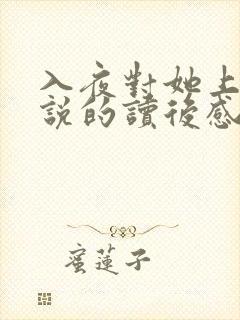 入夜對她上
說的讀後感
蜜蓮子